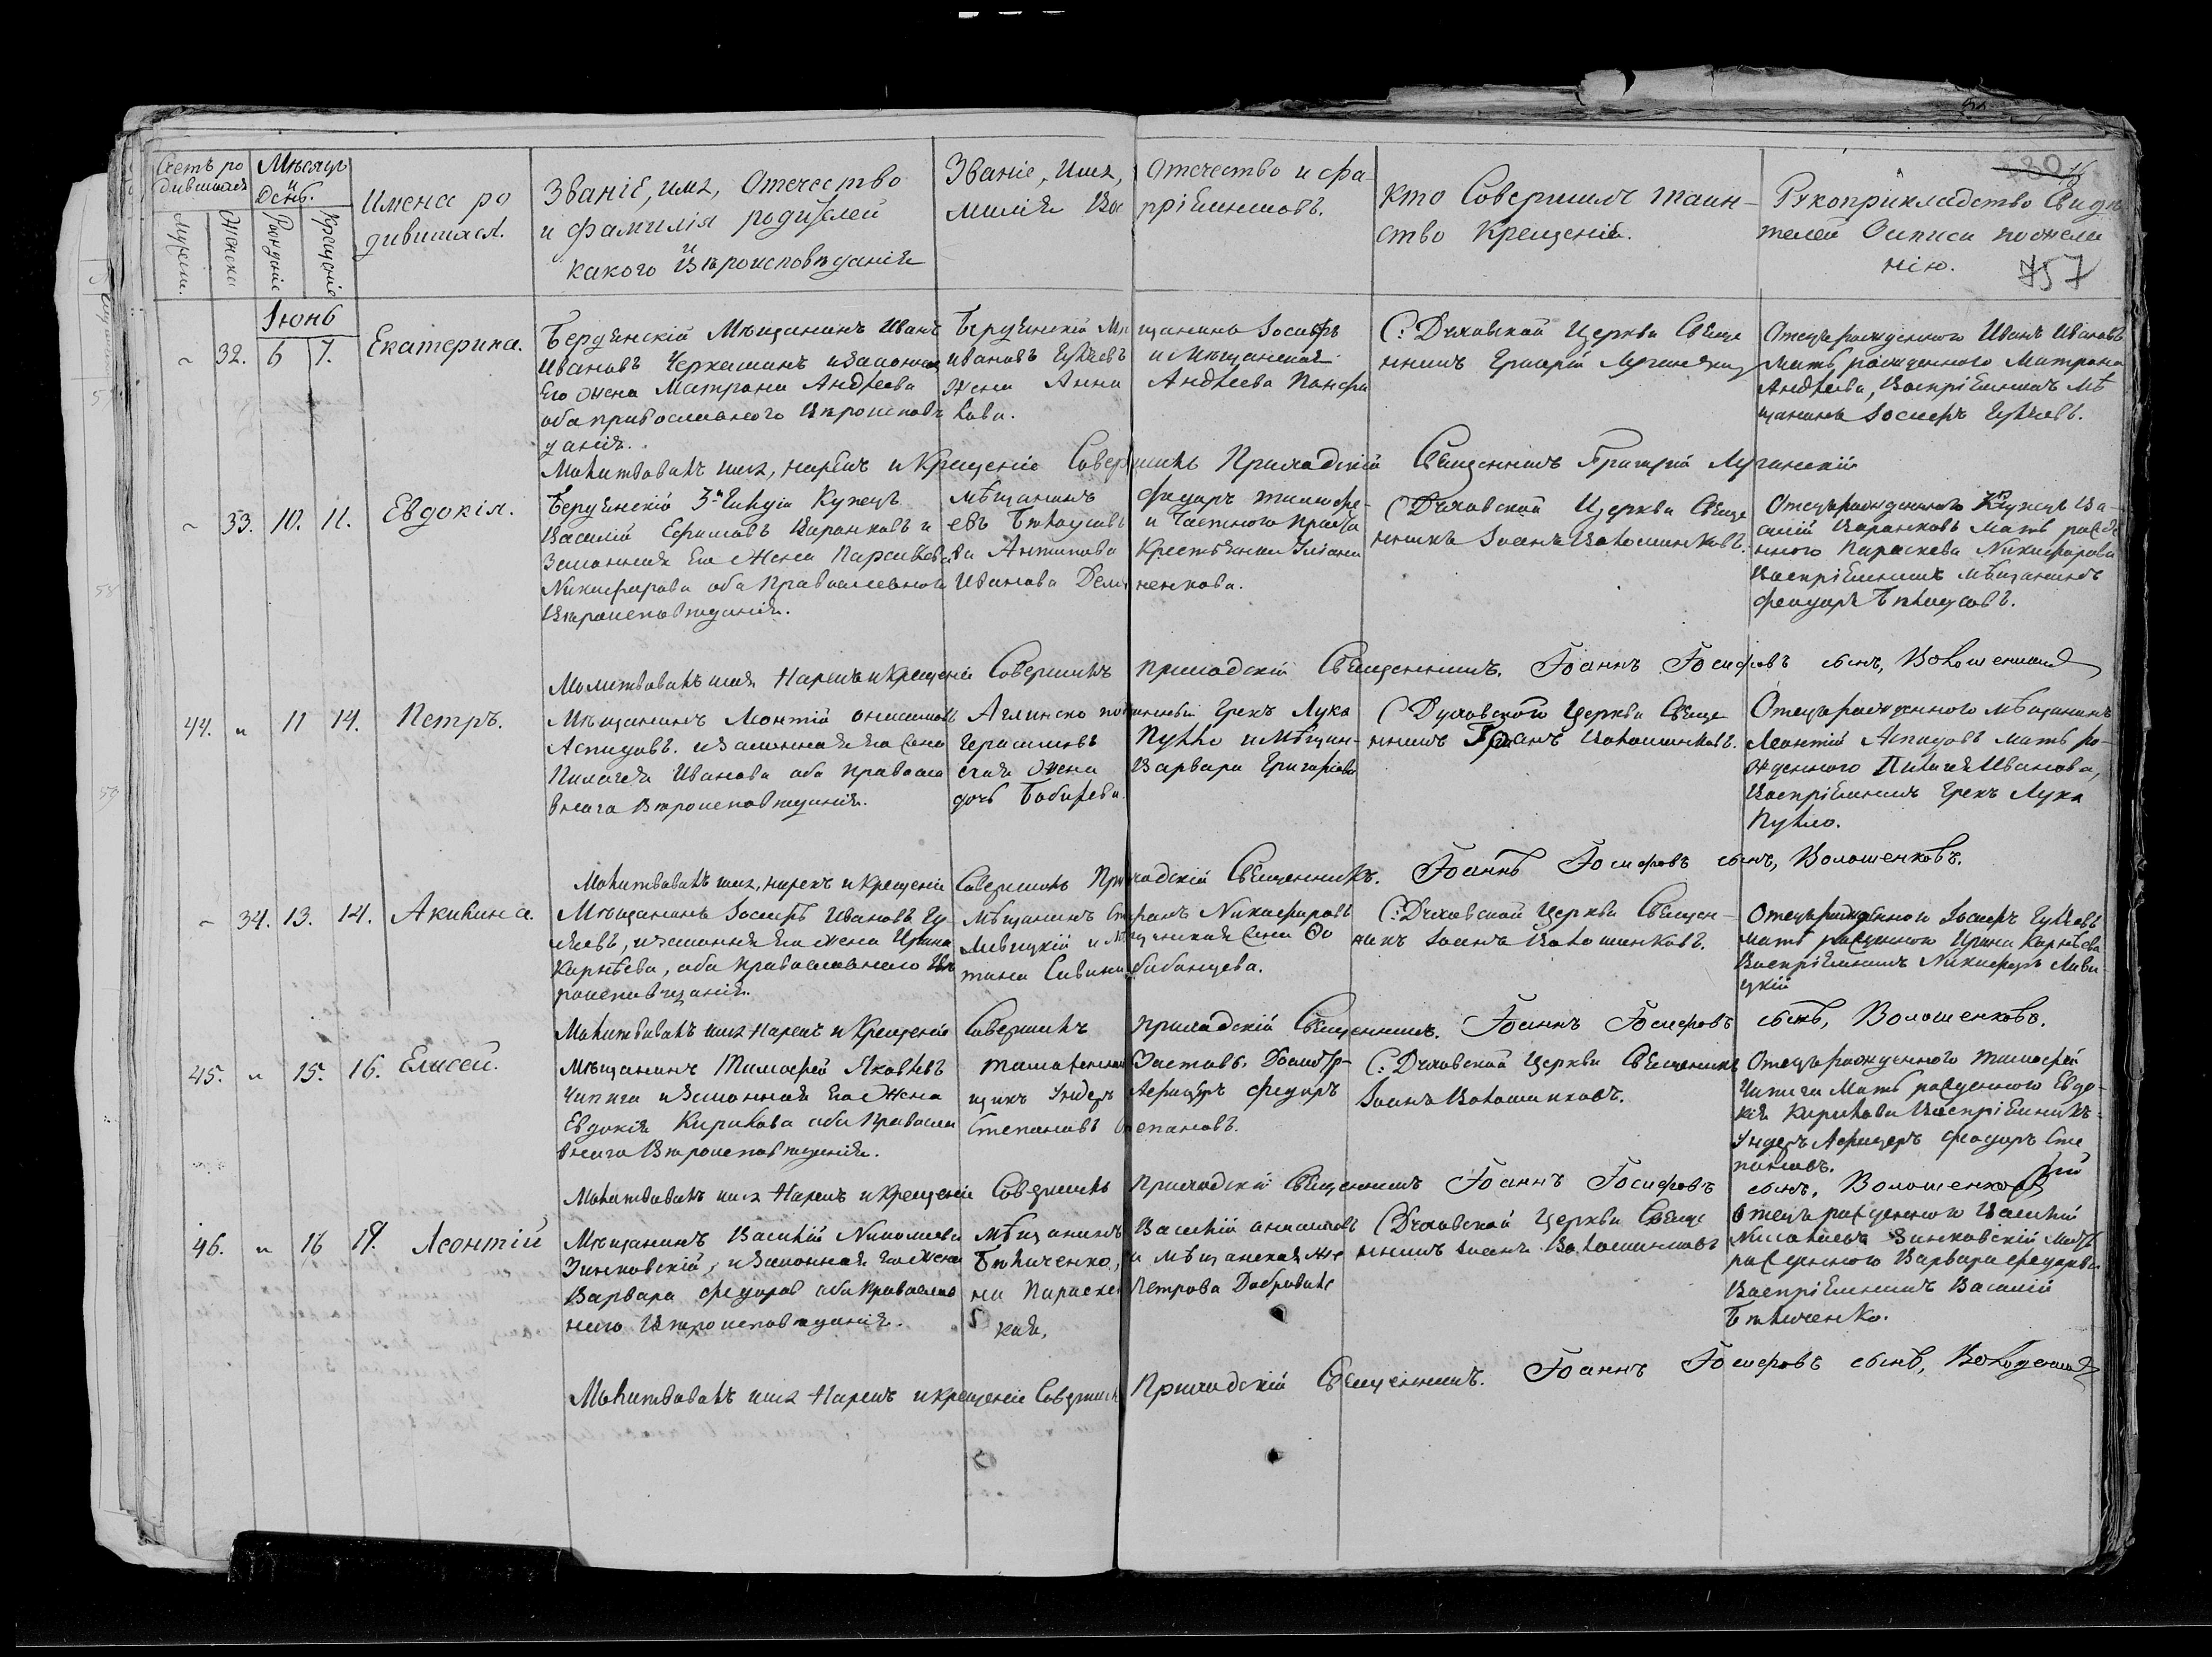 Счетъ ро
дившихся
Мужеска.
Женска
Мѣсяцъ
и
День.
Рожденіе
Крещеніе
Имена ро
дившихся.
Званіе, имя, Отечество
и фамилія родителей
и
какого Вѣроисповѣданія
Званіе, Имя, Отечество и фа-
милія Воспріемниковъ.
Кто Совершилъ таин-
ство Крещенія.
Рукоприкладство Свидѣ
телей Записи пожела
нію.
757
Іюнь
32. 6 7. Екатерина.
Бердянскій Мѣщанинъ Иванъ
Ивановъ Черкашинъ и Законная
Его Жена Матрона Андреева
оба православного Вѣроисповѣ
данія.
Бердянскій Мѣщанинъ Іосифъ
Ивановъ и Мѣщанская
Жена Анна Андреева Панфи
лова.
С: Духовской Церкви Свяще
нникъ Григорій
Отецъ рожденного Иванъ Ивановъ
Мать рожденного Матрона
Андреева, Воспріемникъ Мѣ
щанинъ Іосифъ
Молитвовалъ имя, нарѣкъ и Крещеніе Совершилъ Приходскій Священникъ Григорій
33. 10. 11. Евдокія.
Бердянскій 3й Гильдіи Купецъ
Василій Ефимовъ и
Законная Его Жена Параскева
Никифорова оба Православного
Вѣроисповѣданія.
Мѣщанинъ Федоръ Тимофе-
евъ Бѣлоусовъ и Частного
Антипова Крестьянка
Иванова
С: Духовской Церкви Свяще
нникъ Іоанъ Волошинковъ.
Отецъ рожденного Купецъ Ва-
силій Мать рожде
нного Параскева Никифорова
Воспріемникъ Мѣщанинъ
Феодоръ Бѣлоусовъ.
Молитвовалъ имя Нарекъ и Крещеніе Совершилъ Приходскій Священникъ. Іоаннъ Іосифовъ сынъ, Волошенковъ
44. 11 14. Петръ.
Мѣщанинъ Леонтій Онисимовъ
Аспидовъ. и Законная Его Жена
Пилагея Иванова оба Правосла
вного Вѣроисповѣданія.
Грекъ Лука
Герасимовъ Пулло и Мѣщан-
ская Жена Варвара Григорьева
дочь
С: Духовской Церкви Свяще
нникъ Іоанъ Волошинковъ.
Отецъ рожденного Мѣщанинъ
Леонтій Аспидовъ Мать ро-
жденного Пилагея Иванова,
Воспріемникъ Грекъ Лука
Пулло.
Молитвовалъ имя, нарекъ и Крещеніе Совершилъ Приходскій Священникъ. Іоаннъ Іосифовъ сынъ, Волошенковъ.
34. 13. 14. Акилина.
Мѣщанинъ Іосифъ Ивановъ
и Законная Его Жена Ирина
Карнѣева, оба Православного Вѣ
роисповѣданія.
Мѣщанинъ Никифоровъ
Левицкій и Мѣщанская Жена
Савина
С: Духовской Церкви Священ-
никъ Іоанъ Волошинковъ.
Отецъ рожденного Іосифъ
Мать рожденного Ирина Карнѣева
Воспріемникъ Никифоръ Леви
цкій
Молитвовалъ имя Нарекъ и Крещеніе Совершилъ Приходскій Священникъ. Іоаннъ Іосифовъ сынъ, Волошенковъ.
45. 15. 16. Елисей.
Мѣщанинъ Тимофей Яковлевъ
Чипига и Законная Его Жена
Евдокія Кирилова оба Правосла
вного Вѣроисповѣданія.
Таможенной Заставы
Ундеръ Афицеръ Федоръ
Степановъ Степановъ.
С: Духовской Церкви Священникъ
Іоанъ Волошинковъ.
Отецъ рожденного Тимофей
Чипига Мать рожденного Евдо-
кія Кирилова Воспріемникъ
Ундеръ Афицеръ Феодоръ Сте
пановъ.
Молитвовалъ имя Нарекъ и Крещеніе Совершилъ Приходскій Священникъ Іоаннъ Іосифовъ сынъ, Волошенковъ
46. 18 19. Леонтій
Мѣщанинъ Василій Николаевъ
Зинковскій, и Законная Его Жена
Варвара Федорова оба Православ
ного Вѣроисповѣданія.
Мѣщанинъ Василій
и Мѣщанская Же
на Параскева Петрова Добровольс
кая,
С: Духовской Церкви Свяще
нникъ Іоанъ Волошинковъ
Отецъ рожденного Василій
Николаевъ Зинковскій Мать
рожденного Варвара Федорова
Воспріемникъ Василій
Молитвовалъ имя Нарекъ и Крещеніе Совершилъ Приходскій Священникъ. Іоаннъ Іосифовъ сынъ,